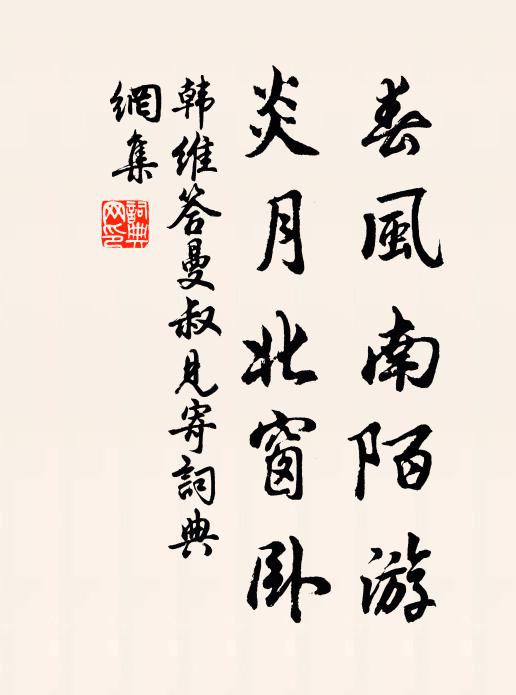 春風南陌游
炎月北窗卧
韩維答曼叔見寄詞典
網集
詞典
网印